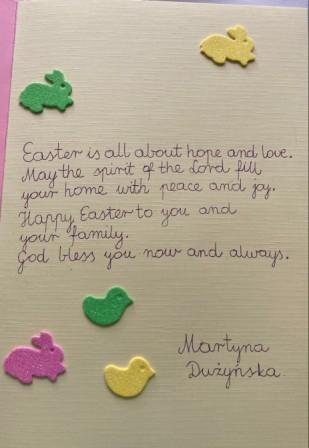 Easter is all about hope and love.
May the spirit of the Lord fill
your home with peace and joy.
Happy Easter to you and
your family.
God bless you now and always.
Martyna
Dużyńska